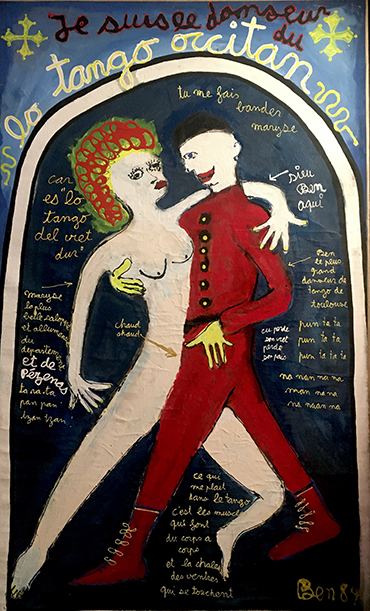 Je suis le danseur
du
lo tango occitan
tu me fais
bander
maryse
car
es "lo
tango
del viet
dur"
sieu
Ben
aqui
maryse
la plus
belle salope
et allumeuse
du
departement
et de
Pézenas
ta ra ta
pan pan
tzan tzan
chaud
chaud
Ben
le plus
grand
danseur de
tango de
toulouse
pun ta ta
pun ta ta
pun ta ta
na nan na na
man na na
na naan na
cu perde
son
perde
son pais
ce qui
me plait
dans le tango
c'est les muscles
qui font
du corps a
corps
et la chaleur
des ventres
qui se touchent
Ben 84